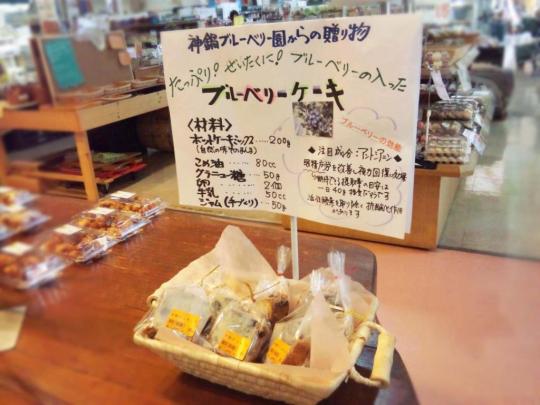 神鍋ブルーベリー園からの贈り物
たっぷり!ぜいたくに!ブルーベリーの入った
ブルーベリーケーキ
〈材料〉
ホットケーキミックス……200g
こめ油……80cc
グラニュー糖……50g
卵……2個
牛乳……50cc
ジャム(手づくり)……50g
ブルーベリーの効能
◆注目成分:アントシアニン◆
眼精疲労を改善し視力回復の効果
一日40g